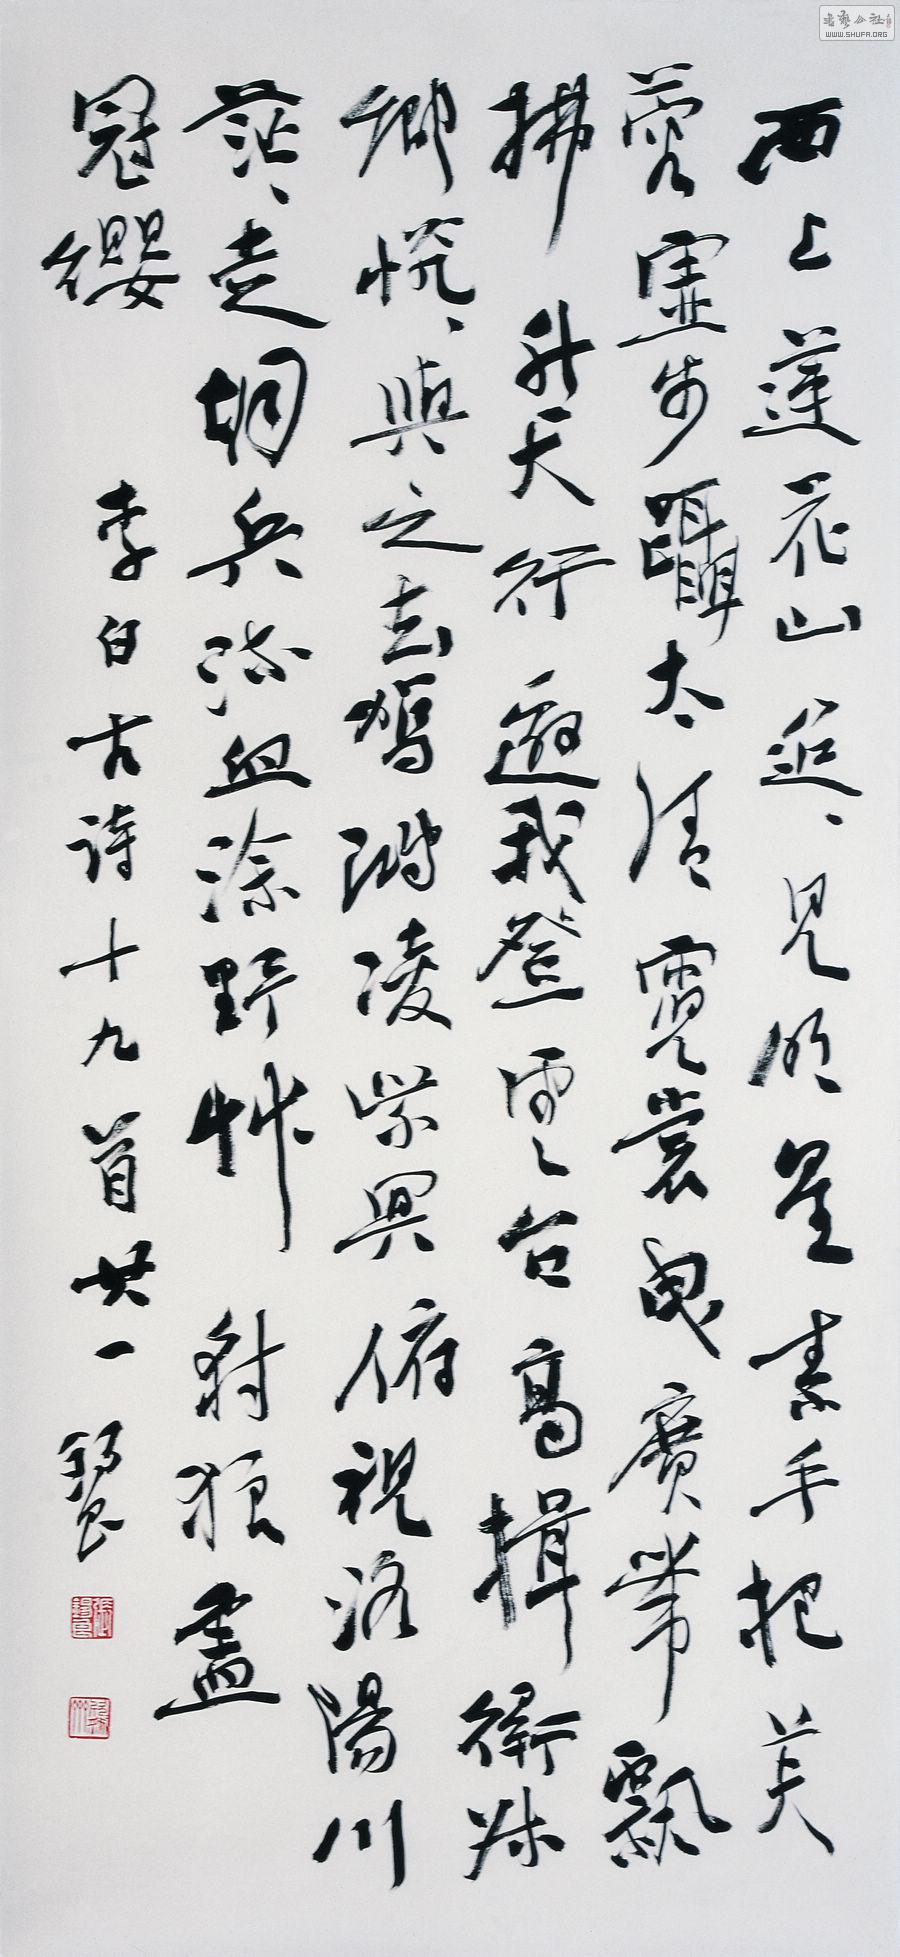 西上蓮花山迢、見明星素手把芙
蓉虛步躡太清霓裳曳廣帶飄
拂升天行邀我登雲台高揖衛叔
卿恍、與之去駕鴻凌紫冥俯視洛陽川
茫、走胡兵流血涂野艸豺狼盡
冠纓 李白古詩十九首其一 錫良
書藝公社
WWW.SHUFA.ORG